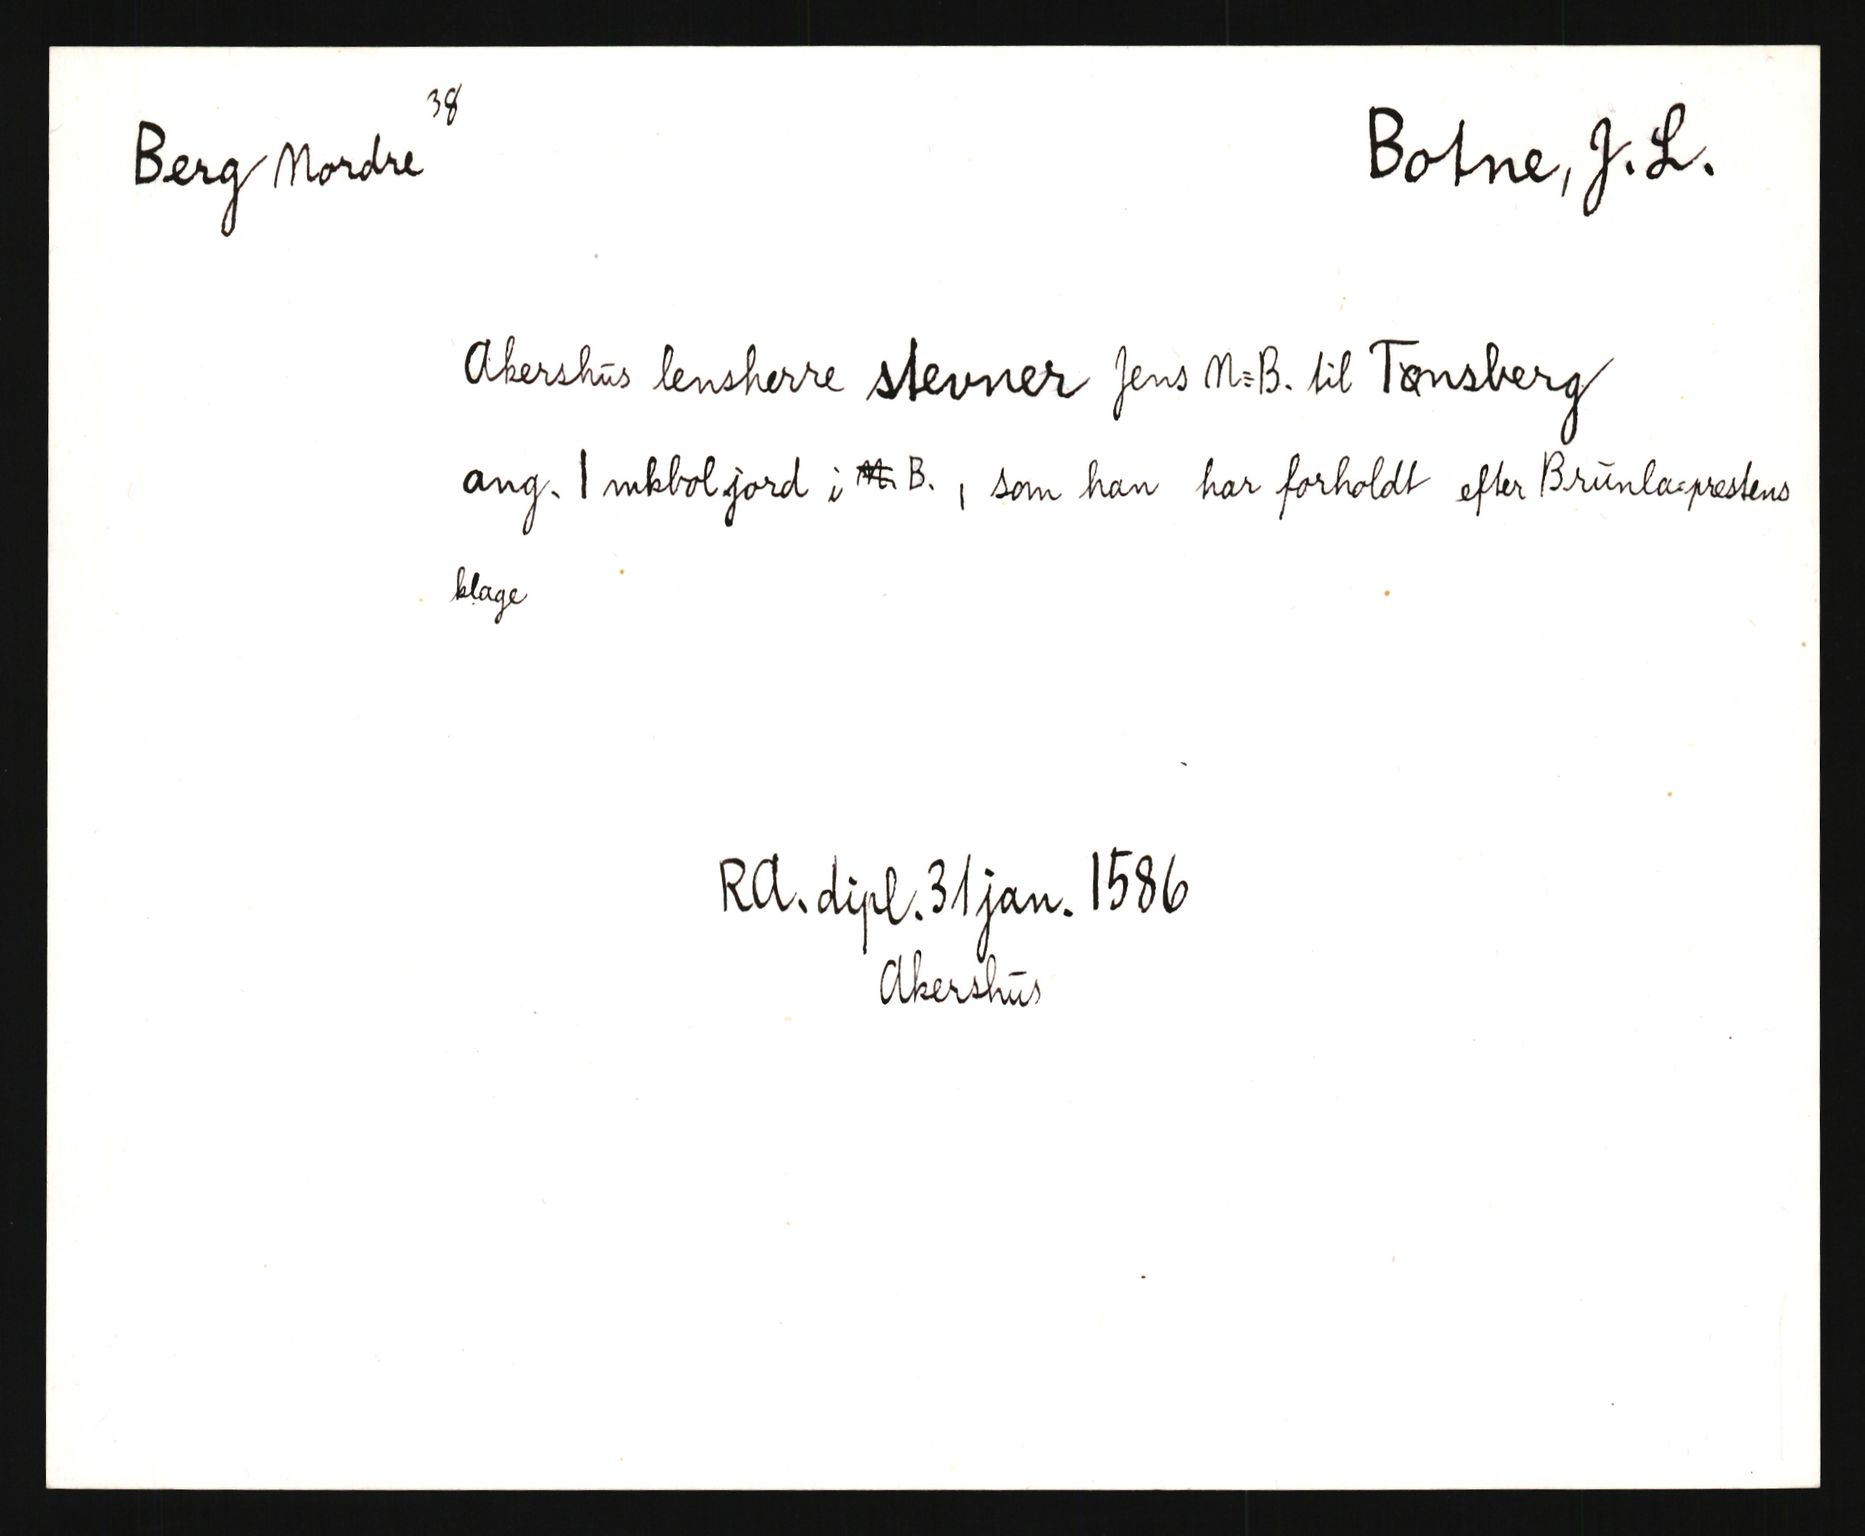 Berg Nordre 38
Botne, J. L.
Akershus lensherre stevner Jens N=B. til Tønsberg
ang. 1 mkbol jord i B., som han har forholdt efter Brunla=prestens
klage
RA. dipl. 31 jan. 1586
Akershus